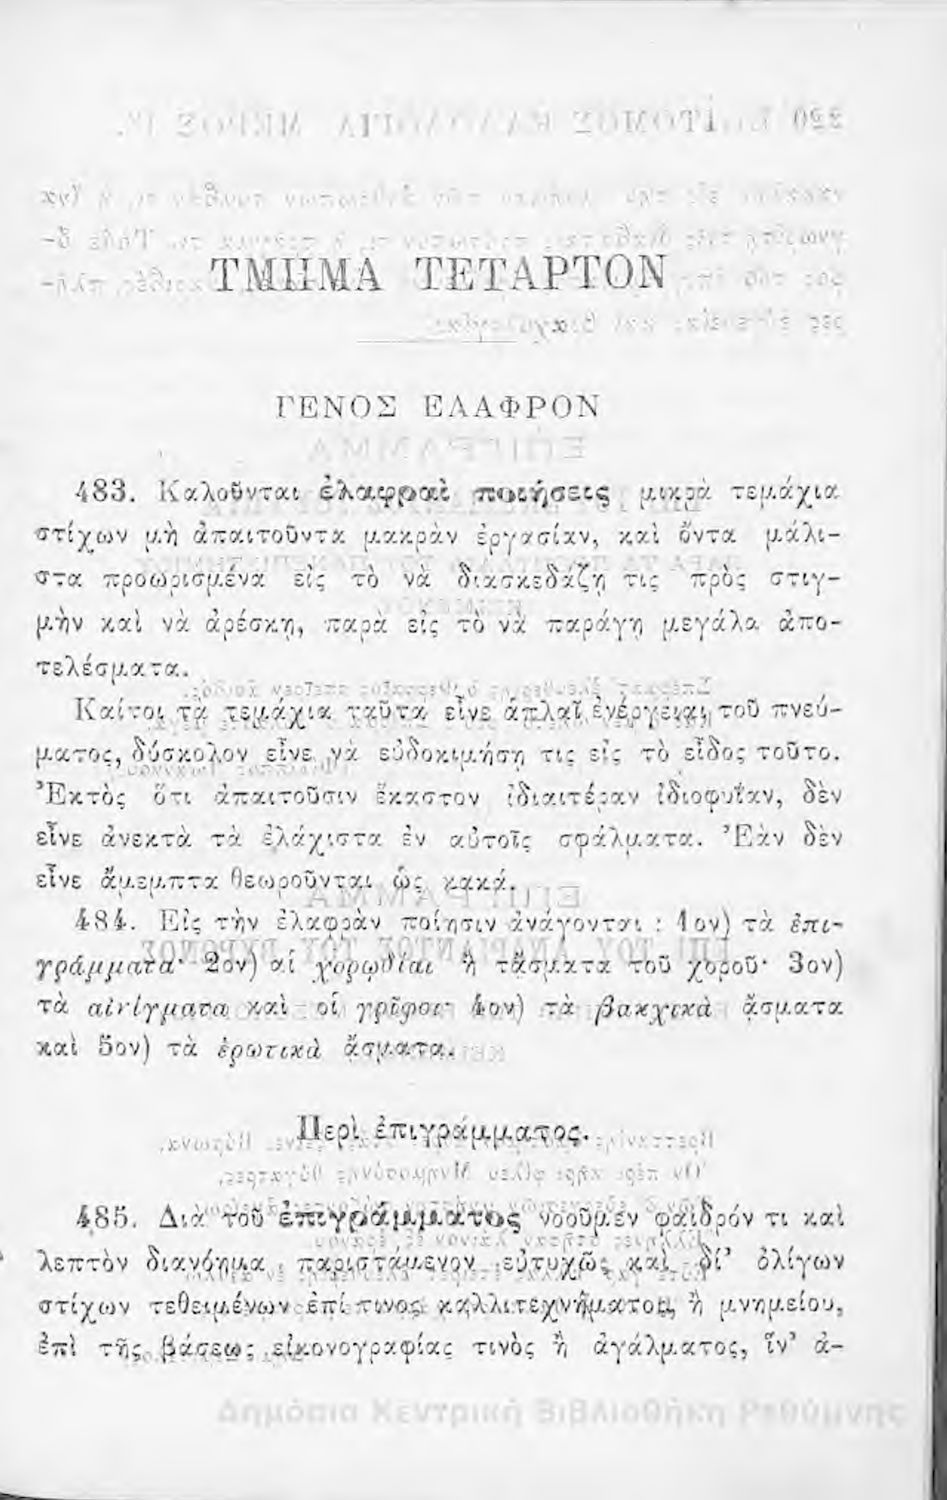 ΤΜΗΜΑ ΤΕΤΑΡΤΟΝ
ΓΕΝΟΣ ΕΛΑΦΡΟΝ
483. Καλοῦνται ἐλαφραὶ ποιήσεις μικρὰ τεμάχια
στίχων μὴ ἀπαιτοῦντα μακρὰν ἐργασίαν, καὶ ὄντα μάλι-
στα προωρισμένα εἰς τὸ νὰ διασκεδάζῃ τις πρὸς στιγ-
μὴν καὶ νὰ ἀρέσκῃ, παρὰ εἰς τὸ νὰ παράγῃ μεγάλα ἀπο-
τελέσματα.
Καίτοι τὰ τεμάχια ταῦτα εἶνε ἁπλαῖ ἐνέργειαι τοῦ πνεύ-
ματος, δύσκολον εἶνε νὰ εὐδοκιμήσῃ τις εἰς τὸ εἶδος τοῦτο.
Ἐκτὸς ὅτι ἀπαιτοῦσιν ἕκαστον ἰδιαιτέραν ἰδιοφυΐαν, δὲν
εἶνε ἀνεκτὰ τὰ ἐλάχιστα ἐν αὐτοῖς σφάλματα. Ἐὰν δὲν
εἶνε ἄμεμπτα θεωροῦνται ὡς κακά.
484. Εἰς τὴν ἐλαφρὰν ποίησιν ἀνάγονται : 1ον) τὰ ἐπι-
γράμματα· 2ον) αἱ χορῳδίαι ἢ τὰ ᾄσματα τοῦ χοροῦ· 3ον)
τὰ αἰνίγματα καὶ οἱ γρῖφοι· 4ον) τὰ βακχικὰ ᾄσματα
καὶ 5ον) τὰ ἐρωτικὰ ᾄσματα.
Περὶ ἐπιγράμματος.
485. Διὰ τοῦ ἐπιγράμματος νοοῦμεν φαιδρόν τι καὶ
λεπτὸν διανόημα, παριστάμενον εὐτυχῶς καὶ δι’ ὀλίγων
στίχων τεθειμένων ἐπί τινος καλλιτεχνήματος, ἢ μνημείου,
ἐπὶ τῆς βάσεως εἰκονογραφίας τινὸς ἢ ἀγάλματος, ἵν’ ἀ-
Δημόσια Κεντρική Βιβλιοθήκη Ρεθύμνης